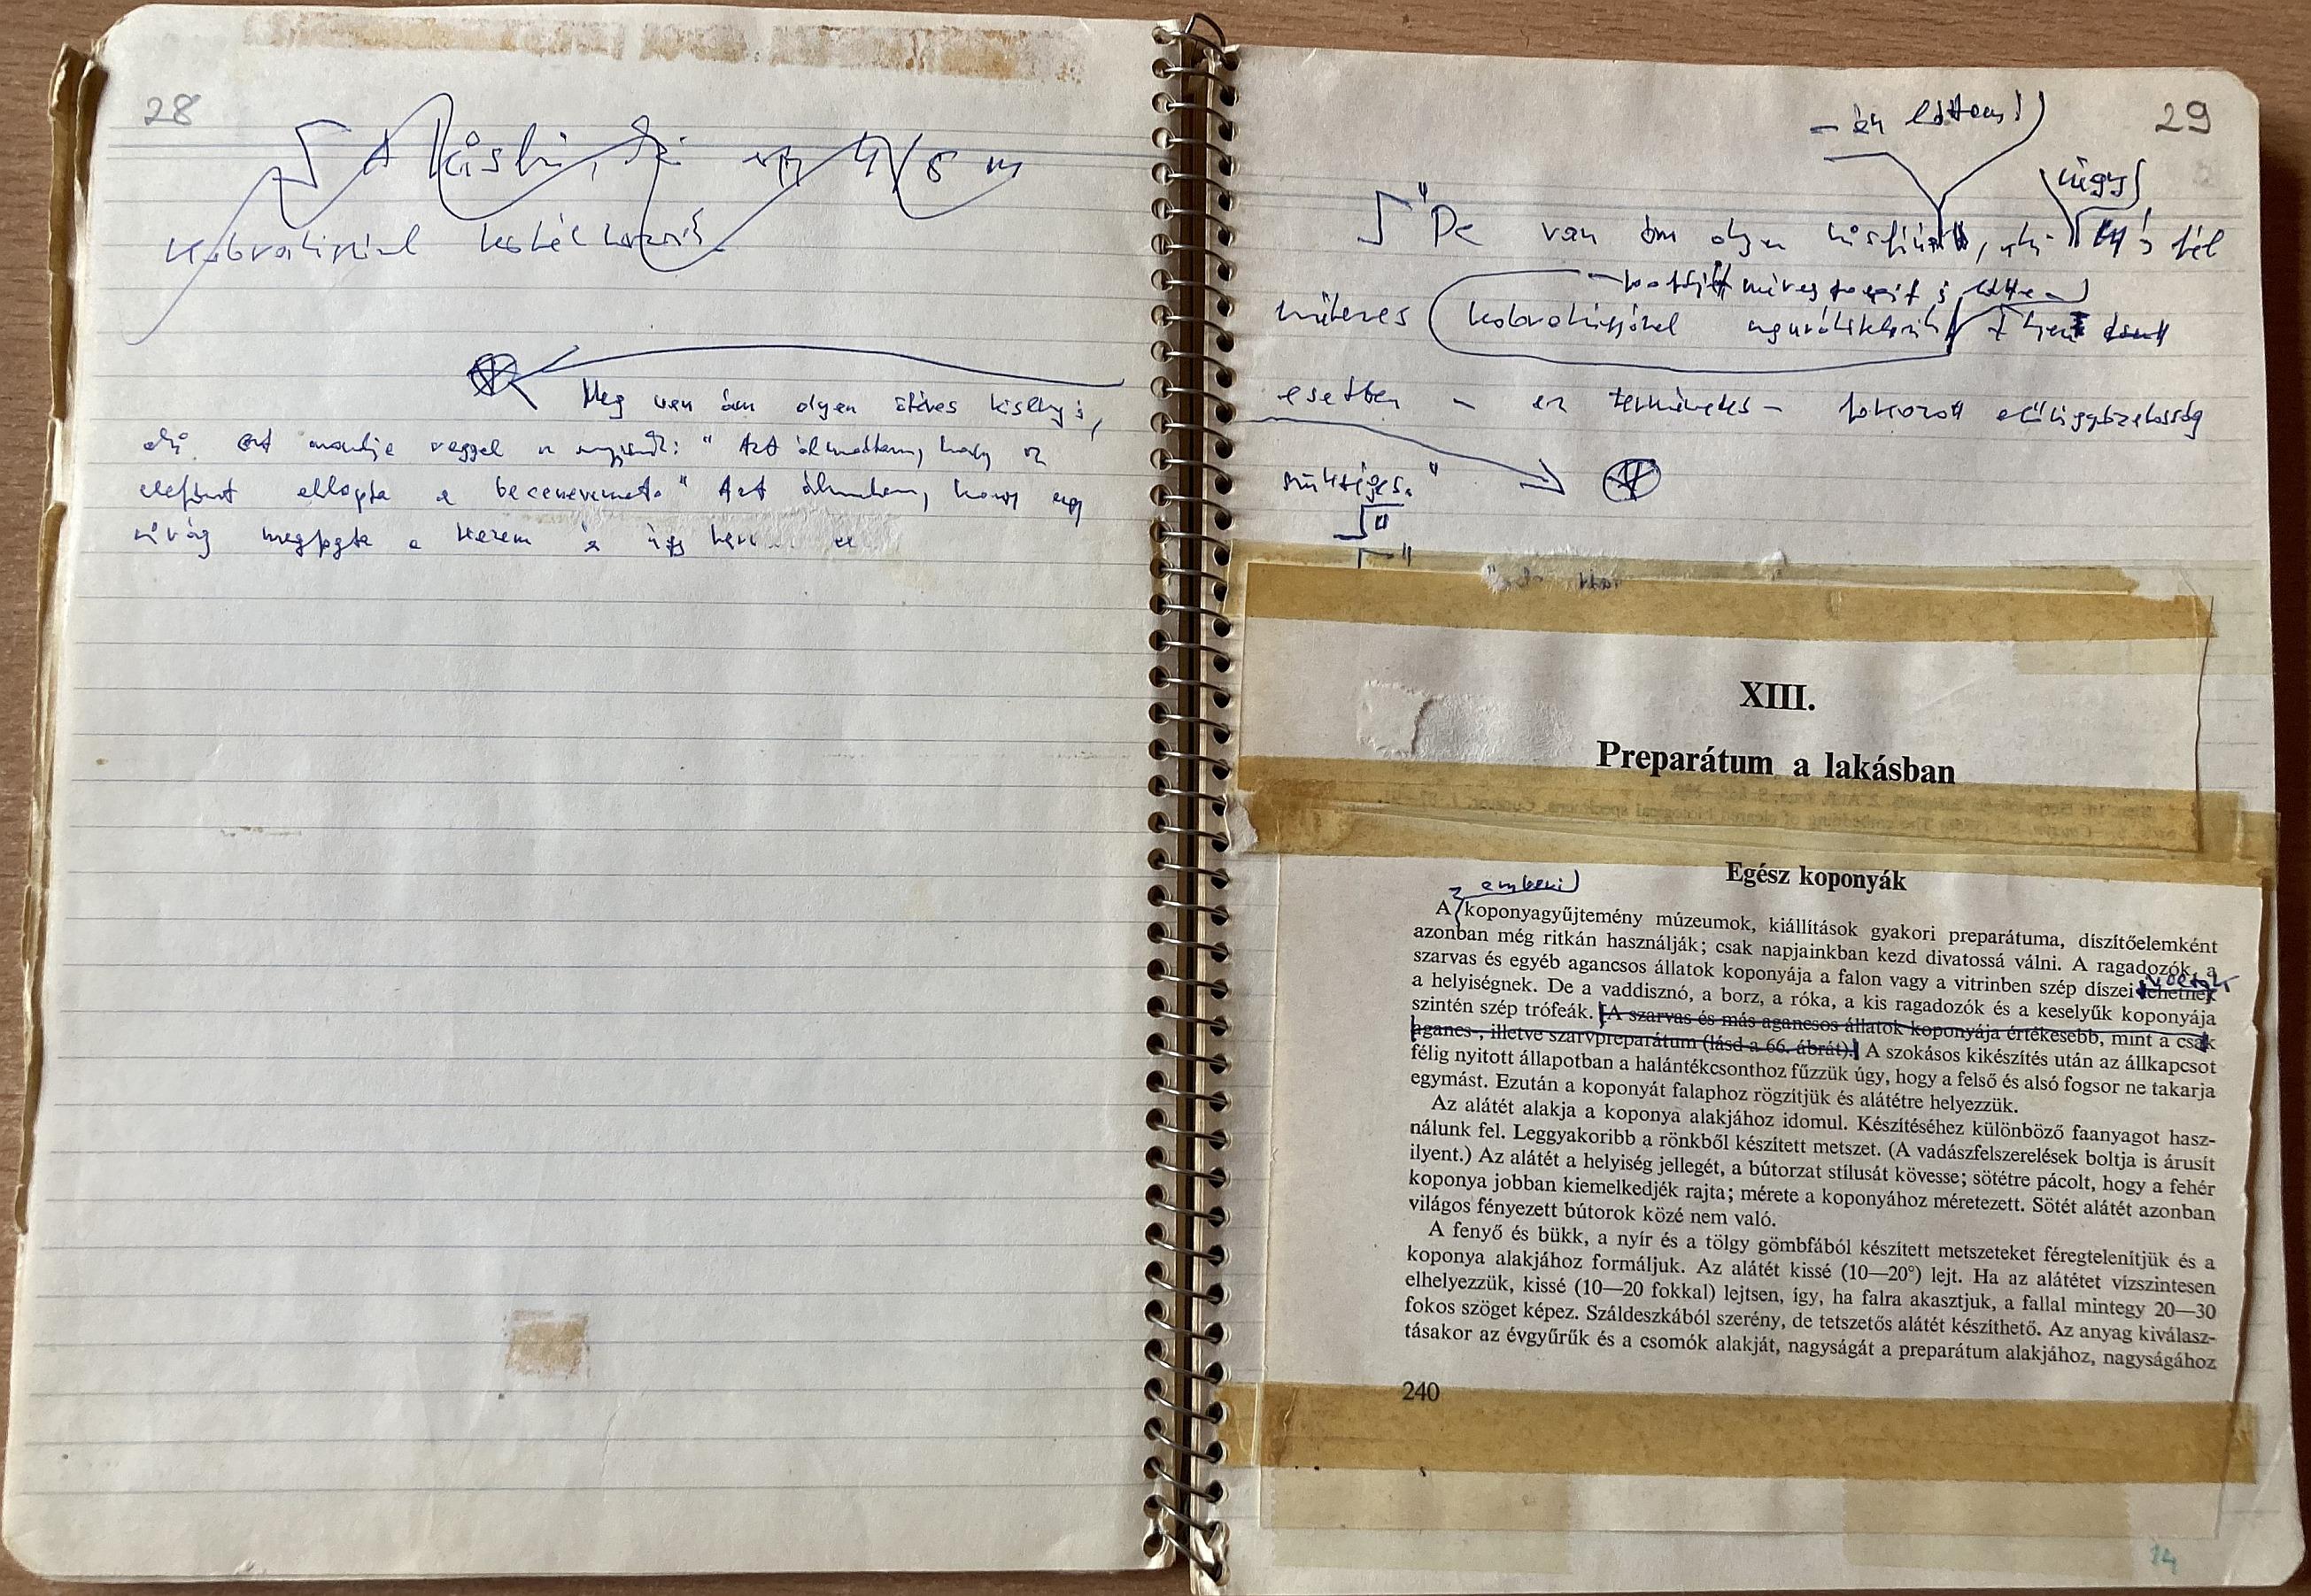 28
kobrahiúzal
Meg van ám olyan ötéves kislány is,
aki azt mondja reggel : "Azt álmodtam, hogy az
elefánt ellopta a becenevemet." Azt álmodtam, hogy egy
virág megfogta a kezem és úgy
29
- én láttam!
négy
"De van ám olyan , aki és fél
méteres
esetben - ez természetes - fokozott elővigyázatosság
szükséges."
XIII.
Preparátum a lakásban
Egész koponyák
emberi
A koponyagyűjtemény múzeumok, kiállítások gyakori preparátuma, díszítőelemként
azonban még ritkán használják; csak napjainkban kezd divatossá válni. A ragadozók, a
szarvas és egyéb agancsos állatok koponyája a falon vagy a vitrinben szép díszei lehetnek
a helyiségnek. De a vaddisznó, a borz, a róka, a kis ragadozók és a keselyűk koponyája
szintén szép trófeák. A szarvas és más agancsos állatok koponyája értékesebb, mint a csak
agancs-, illetve szarvpreparátum (lásd a 66. ábrát). A szokásos kikészítés után az állkapcsot
félig nyitott állapotban a halántékcsonthoz fűzzük úgy, hogy a felső és alsó fogsor ne takarja
egymást. Ezután a koponyát falaphoz rögzítjük és alátétre helyezzük.
Az alátét alakja a koponya alakjához idomul. Készítéséhez különböző faanyagot hasz-
nálunk fel. Leggyakoribb a rönkből készített metszet. (A vadászfelszerelések boltja is árusít
ilyent.) Az alátét a helyiség jellegét, a bútorzat stílusát kövesse; sötétre pácolt, hogy a fehér
koponya jobban kiemelkedjék rajta; mérete a koponyához méretezett. Sötét alátét azonban
világos fényezett bútorok közé nem való.
A fenyő és bükk, a nyír és a tölgy gömbfából készített metszeteket féregtelenítjük és a
koponya alakjához formáljuk. Az alátét kissé (10—20°) lejt. Ha az alátétet vízszintesen
elhelyezzük, kissé (10—20 fokkal) lejtsen, így, ha falra akasztjuk, a fallal mintegy 20—30
fokos szöget képez. Száldeszkából szerény, de tetszetős alátét készíthető. Az anyag kiválasz-
tásakor az évgyűrűk és a csomók alakját, nagyságát a preparátum alakjához, nagyságához
240
14